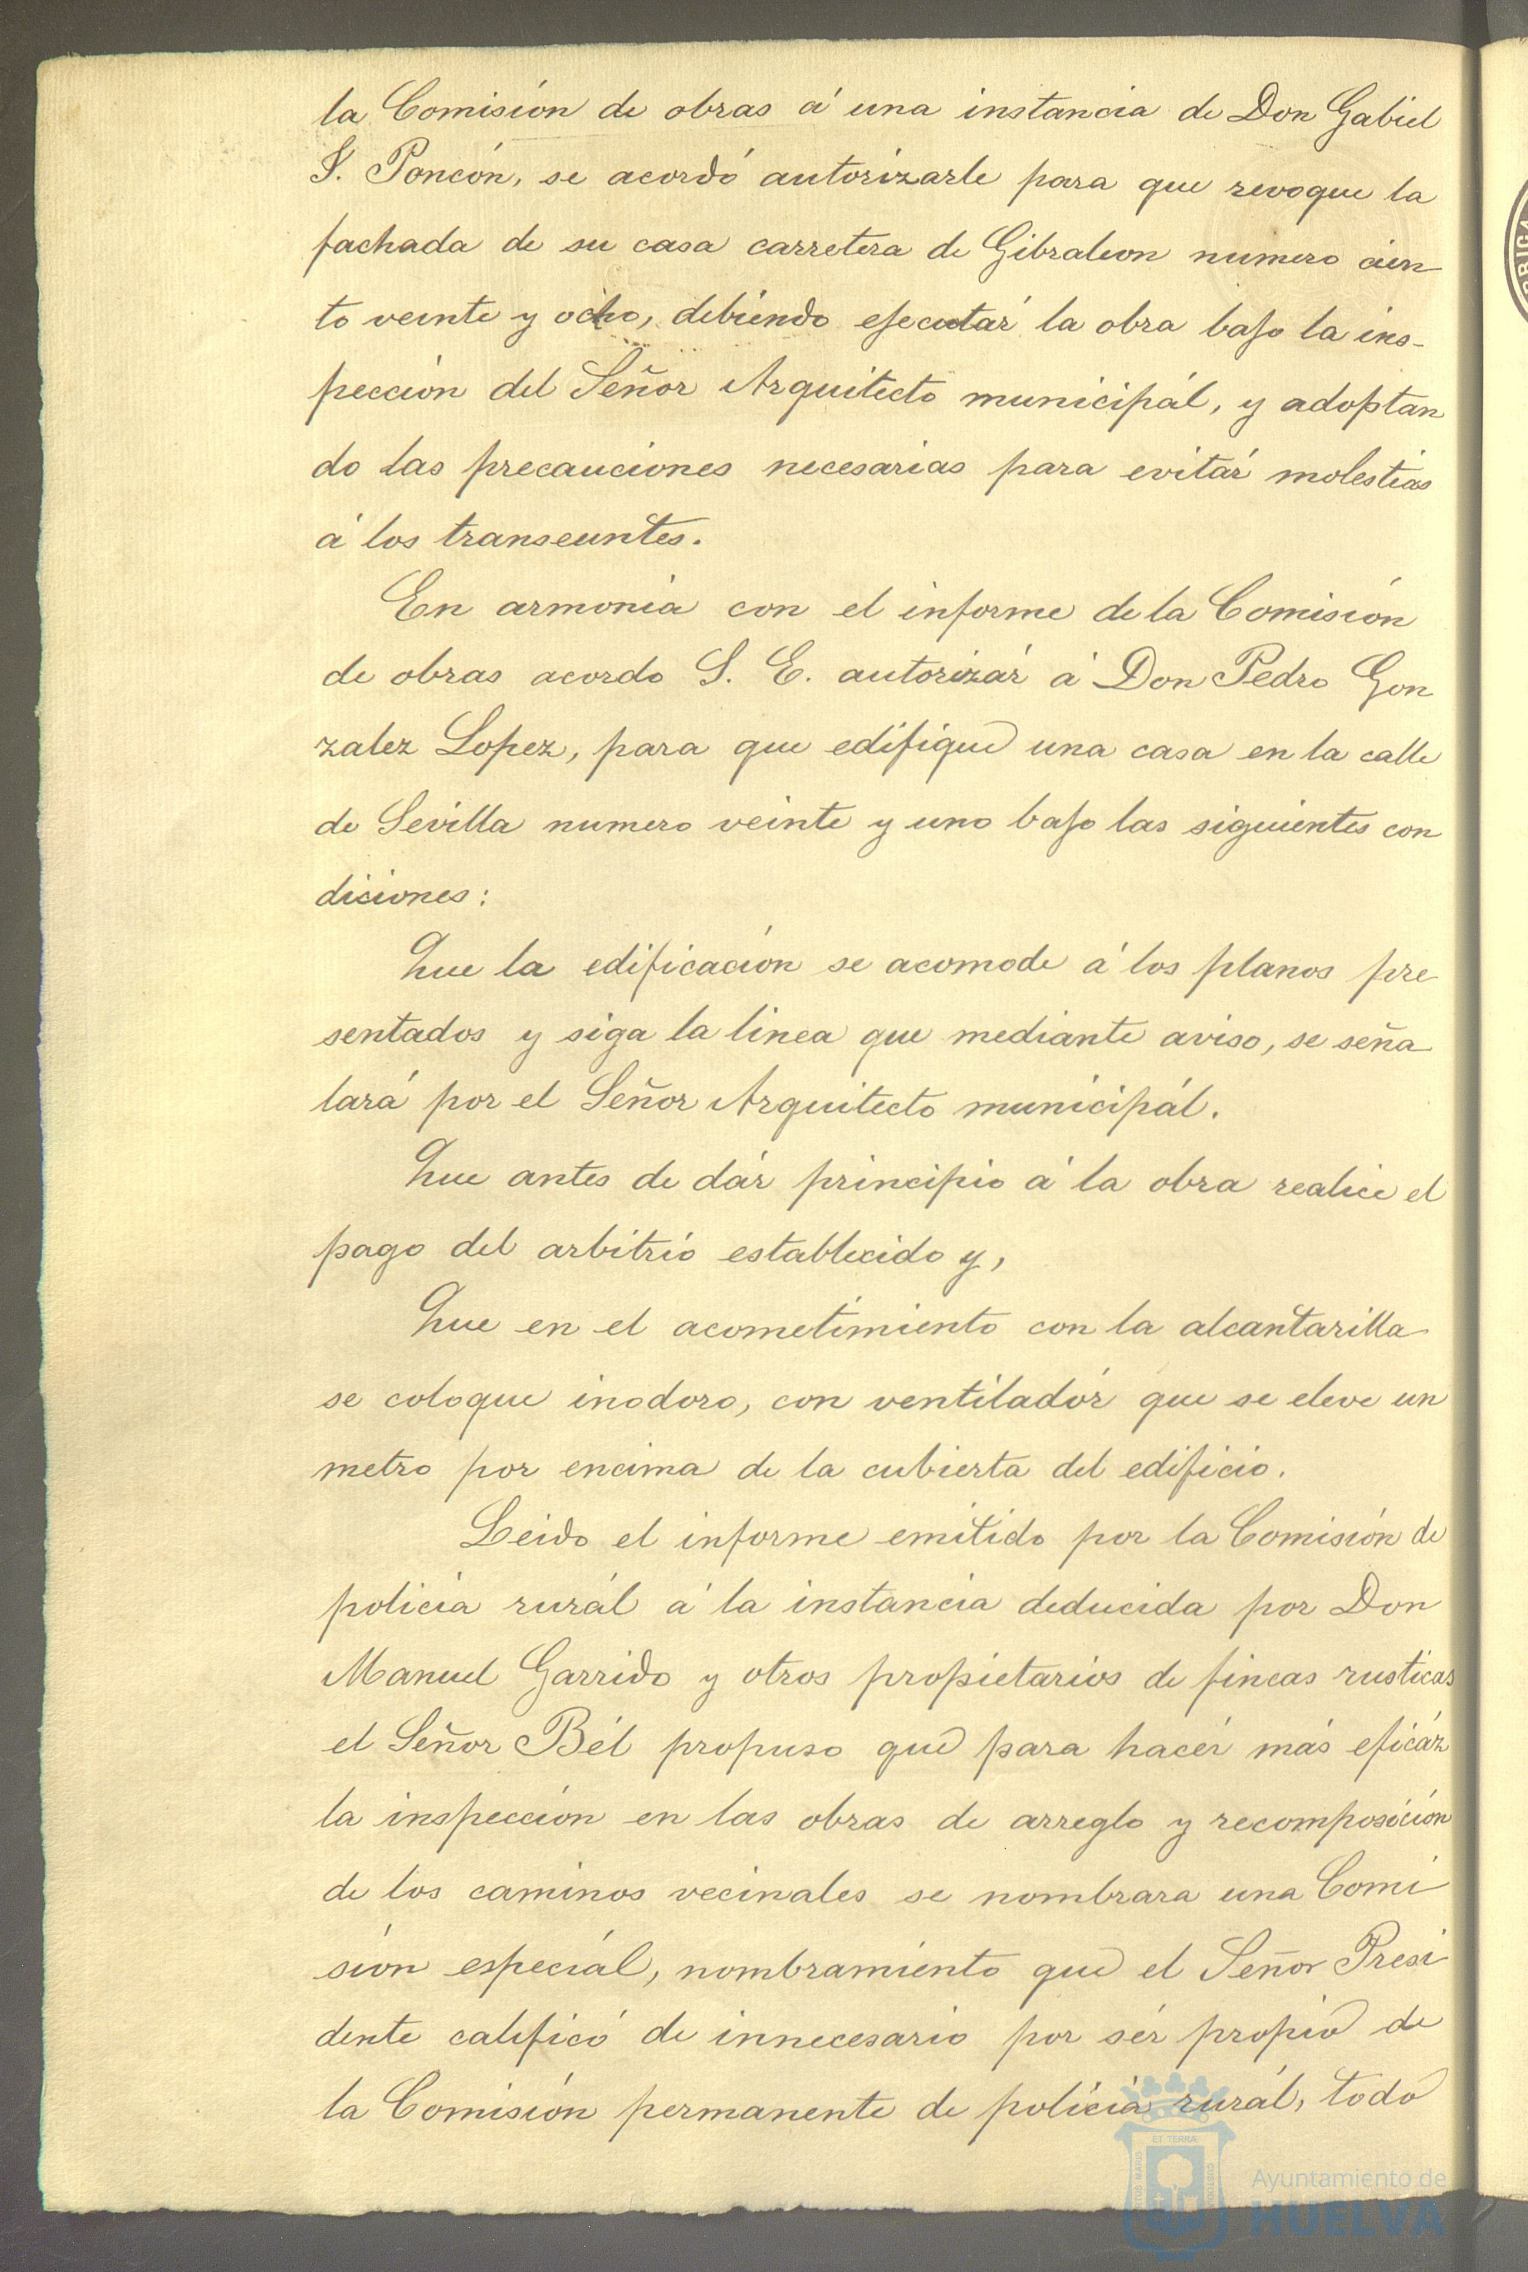 la Comisión de obras á una instancia de Don Gabiel
S. Poncón, se acordó autorizarle para que revoque la
fachada de su casa carretera de Gibraleon numero cien
to veinte y ocho, debiendo ejecutár la obra bajo la ins-
pección del Señor Arquitecto municipál, y adoptan
do las precauciones necesarias para evitár molestias
á los transeuntes.
En armonia con el informe de la Comisión
de obras acordo S. E. autorizár á Don Pedro Gon
zalez Lopez, para que edifique una casa en la calle
de Sevilla numero veinte y uno bajo las siguientes con
diciones:
Que la edificación se acomode á los planos pre
sentados y siga la linea que mediante aviso, se seña
lará por el Señor Arquitecto municipál.
Que antes de dár principio á la obra realice el
pago del arbitrio establecido y,
Que en el acometimiento con la alcantarilla
se coloque inodoro, con ventiladór que se eleve un
metro por encima de la cubierta del edificio.
Leido el informe emitido por la Comisión de
policia rurál á la instancia deducida por Don
Manuel Garrido y otros propietarios de fincas rusticas
el Señor Bél propuso que para hacér más eficáz
la inspección en las obras de arreglo y recomposición
de los caminos vecinales se nombrara una Comi
sión especiál, nombramiento que el Señor Presi
dente calificó de innecesario por sér propio de
la Comisión permanente de policia rurál, todo
ET TERRÆ
Ayuntamiento de
HUELVA